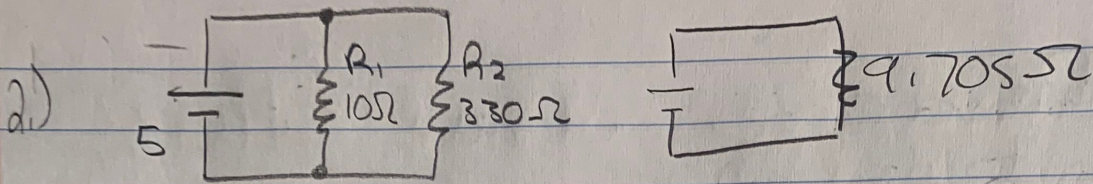 2.)
5
R₁
10Ω
R₂
330Ω
9.705Ω